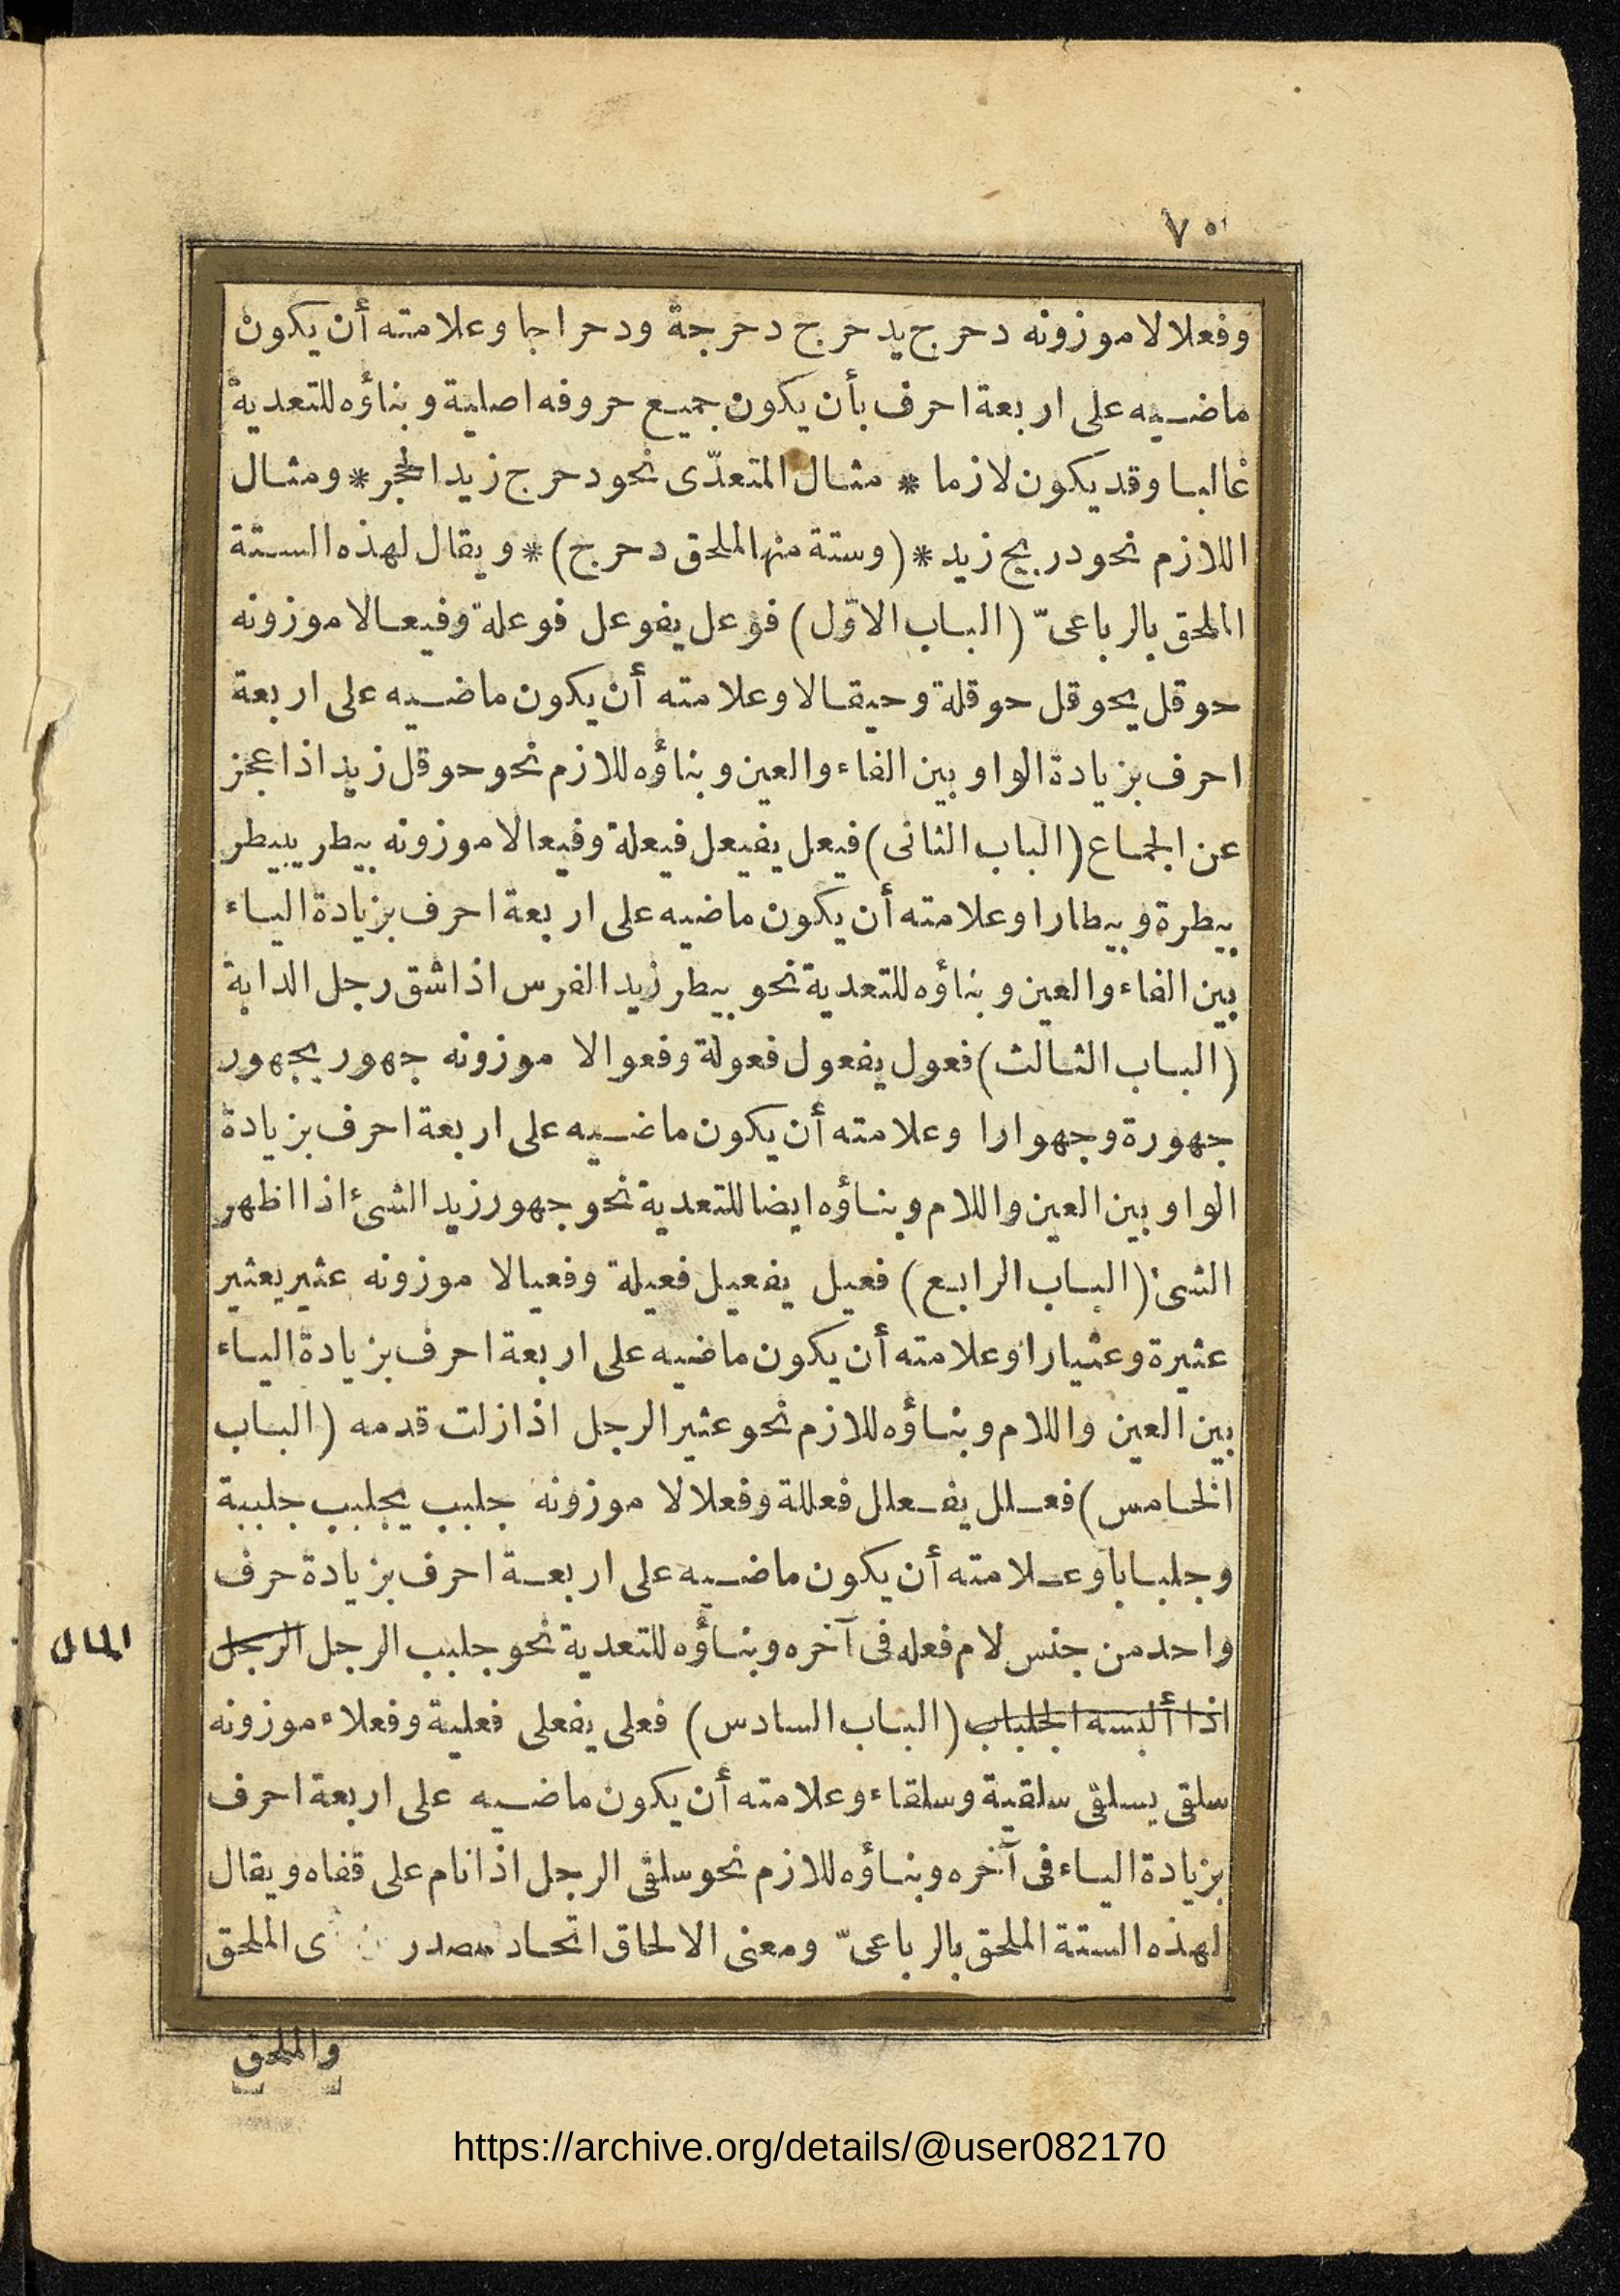 ٧٥
وفعلالا موزونه دحرج يدحرج دحرجة ودحراجا وعلامته أن يكون
ماضيه على اربعة احرف بأن يكون جميع حروفه اصلية وبناؤه للتعدية
غالبا وقد يكون لازما * مثال المتعدّى نحو دحرج زيد الحجر * ومثال
اللازم نحو دربح زيد * (وستة منها لملحق دحرج) * ويقال لهذه الستة
الملحق بالرباعىّ (الباب الاوّل) فوعل يفوعل فوعلة وفيعالا موزونه
حوقل يحوقل حوقلة وحيقالا وعلامته أن يكون ماضيه على اربعة
احرف بزيادة الواو بين الفاء والعين وبناؤه لللازم نحو حوقل زيد اذا عجز
عن الجماع (الباب الثانى) فيعل يفيعل فيعلة وفيعالا موزونه بيطر يبيطر
بيطرة وبيطارا وعلامته أن يكون ماضيه على اربعة احرف بزيادة الياء
بين الفاء والعين وبناؤه للتعدية نحو بيطر زيد الفرس اذا شق رجل الدابة
(الباب الثالث) فعول يفعول فعولة وفعوالا موزونه جهور يجهور
جهورة وجهوارا وعلامته أن يكون ماضيه على اربعة احرف بزيادة
الواو بين العين واللام وبناؤه ايضا للتعدية نحو جهور زيد الشئ اذا اظهر
الشئ (الباب الرابع) فعيل يفعيل فعيلة وفعيالا موزونه عثير يعثير
عثيرة وعثيارا وعلامته أن يكون ماضيه على اربعة احرف بزيادة الياء
بين العين واللام وبناؤه لللازم نحو عثير الرجل اذا زلت قدمه (الباب
الخامس) فعلل يفعلل فعللة وفعلالا موزونه جلبب يجلبب جلببة
وجلبابا وعلامته أن يكون ماضيه على اربعة احرف بزيادة حرف
واحد من جنس لام فعله فى آخره وبناؤه للتعدية نحو جلبب الرجل الرجل
المال
اذا ألبسه الجلباب (الباب السادس) فعلى يفعلى فعلية وفعلاء موزونه
سلقى يسلقى سلقية وسلقاء وعلامته أن يكون ماضيه على اربعة احرف
بزيادة الياء فى آخره وبناؤه لللازم نحو سلقى الرجل اذا نام على قفاه ويقال
لهذه الستة الملحق بالرباعىّ ومعنى الالحاق اتحاد مصدر ى الملحق
والملحق
https://archive.org/details/@user082170